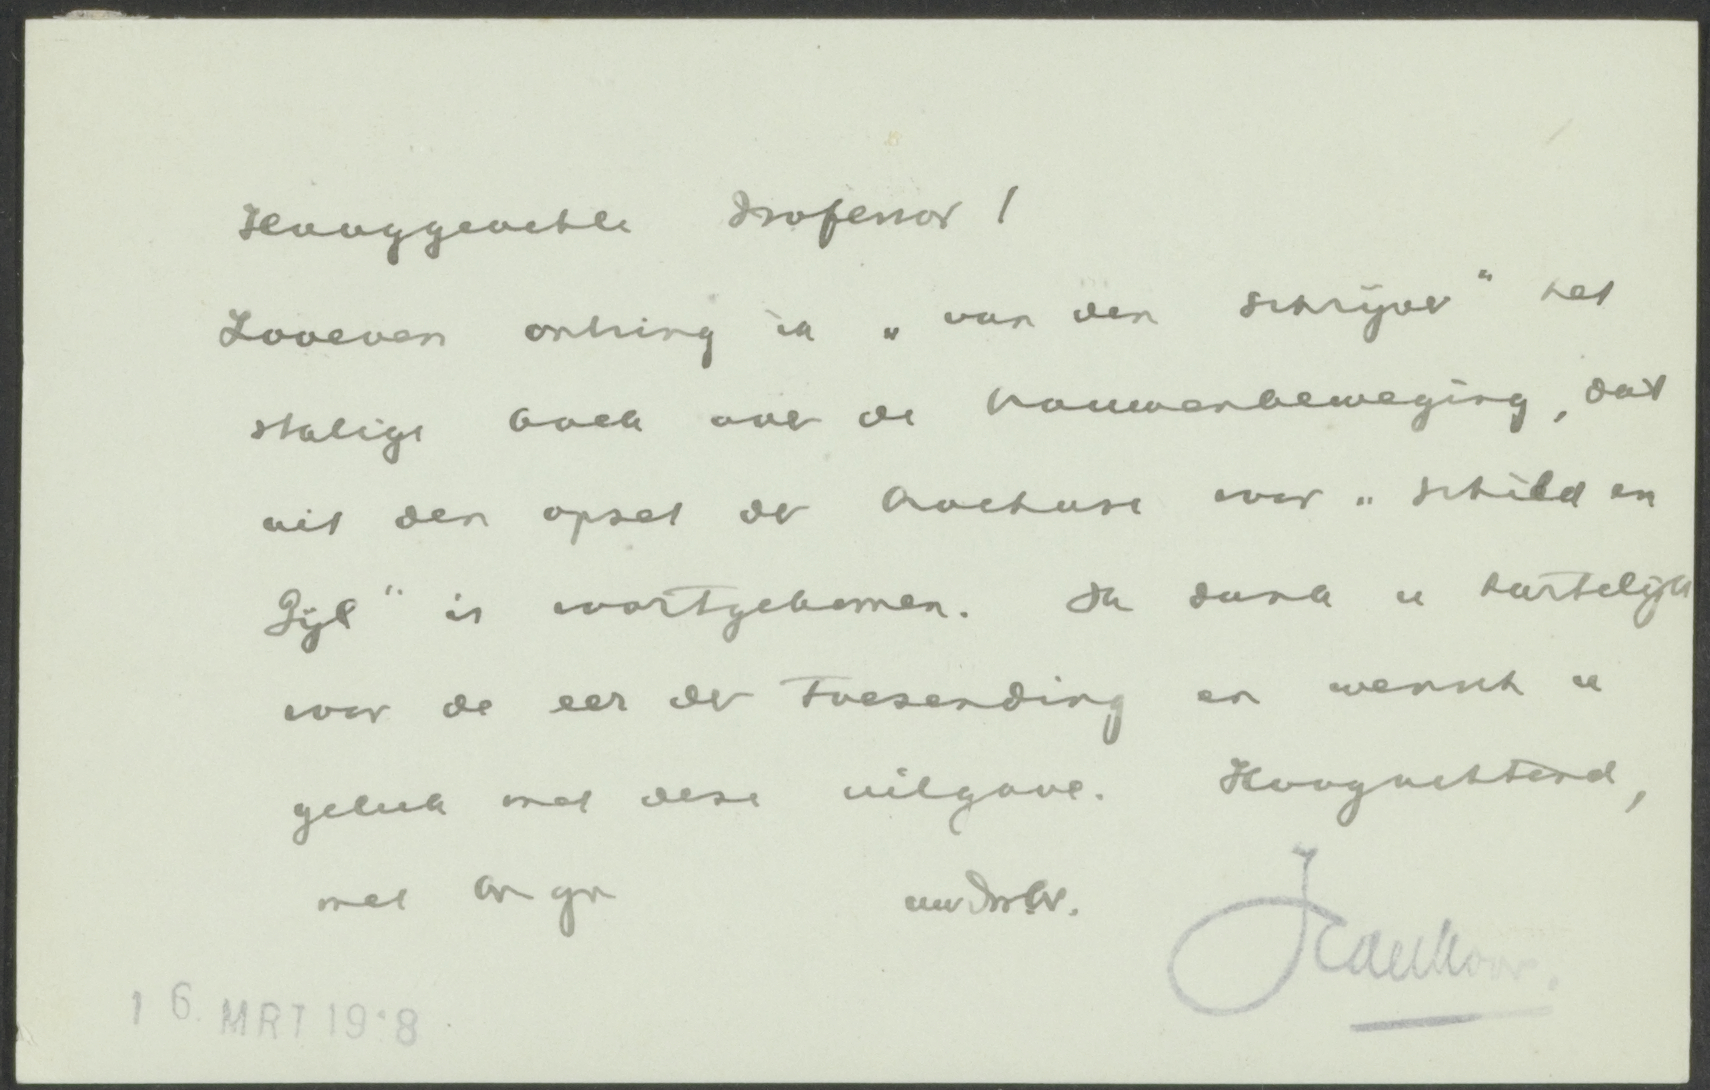 Hooggeachte Professor!
Zooeven ontving ik „van den schrijver" het
statige boek over de vrouwenbeweging, dat
uit den opzet der brochure voor „Schild en
Pijl" is voortgekomen. Ik dank u hartelijk
voor de eer der toezending en wensch u
geluk met deze uitgave. Hoogachtend,
met br gr uw dw br.
16 MRT 19 8